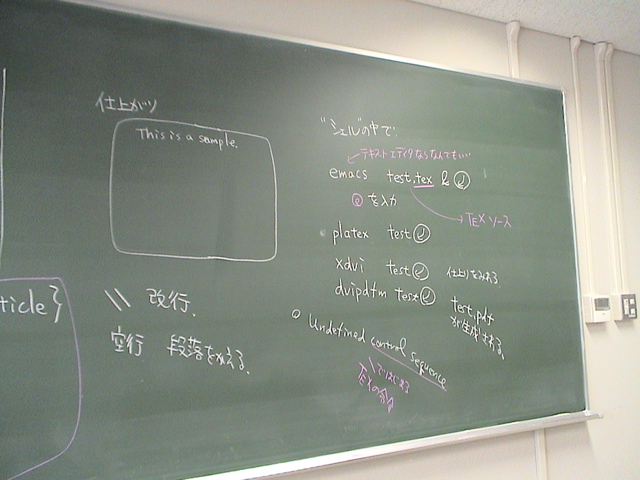 仕上がり
This is a sample.
ticle}
\\ 改行.
空行 段落をかえる.
"シェル"の中で.
テキストエディタならなんでも…
emacs test.tex &
を入力
TEXソース
platex test
xdvi test 仕上りをみる
dvipdfm test
test.pdf
が生成される.
Undefined control sequence
\ではじまる
TEXの命令